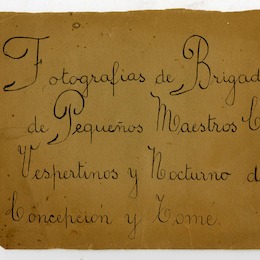 Fotografías de Brigad
de Pequeños Maestros C
Vespertinos y Nocturno d
Concepción y Tomé.